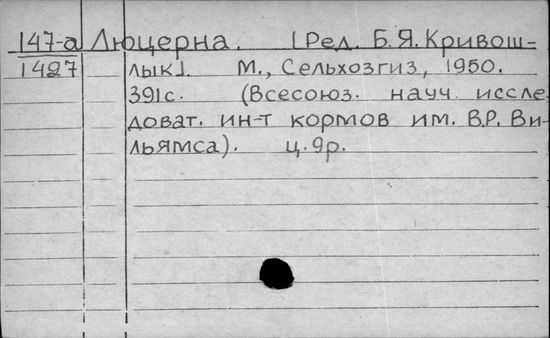 147-а Люцерна. [Ред. Б.Я. Кривош-
1427 лык]. М., Сельхозгиз, 1950.
391с. (Всесоюз. науч. иссле
доват. ин-т кормов им. В.Р. Ви-
льямса). ц. 9р.